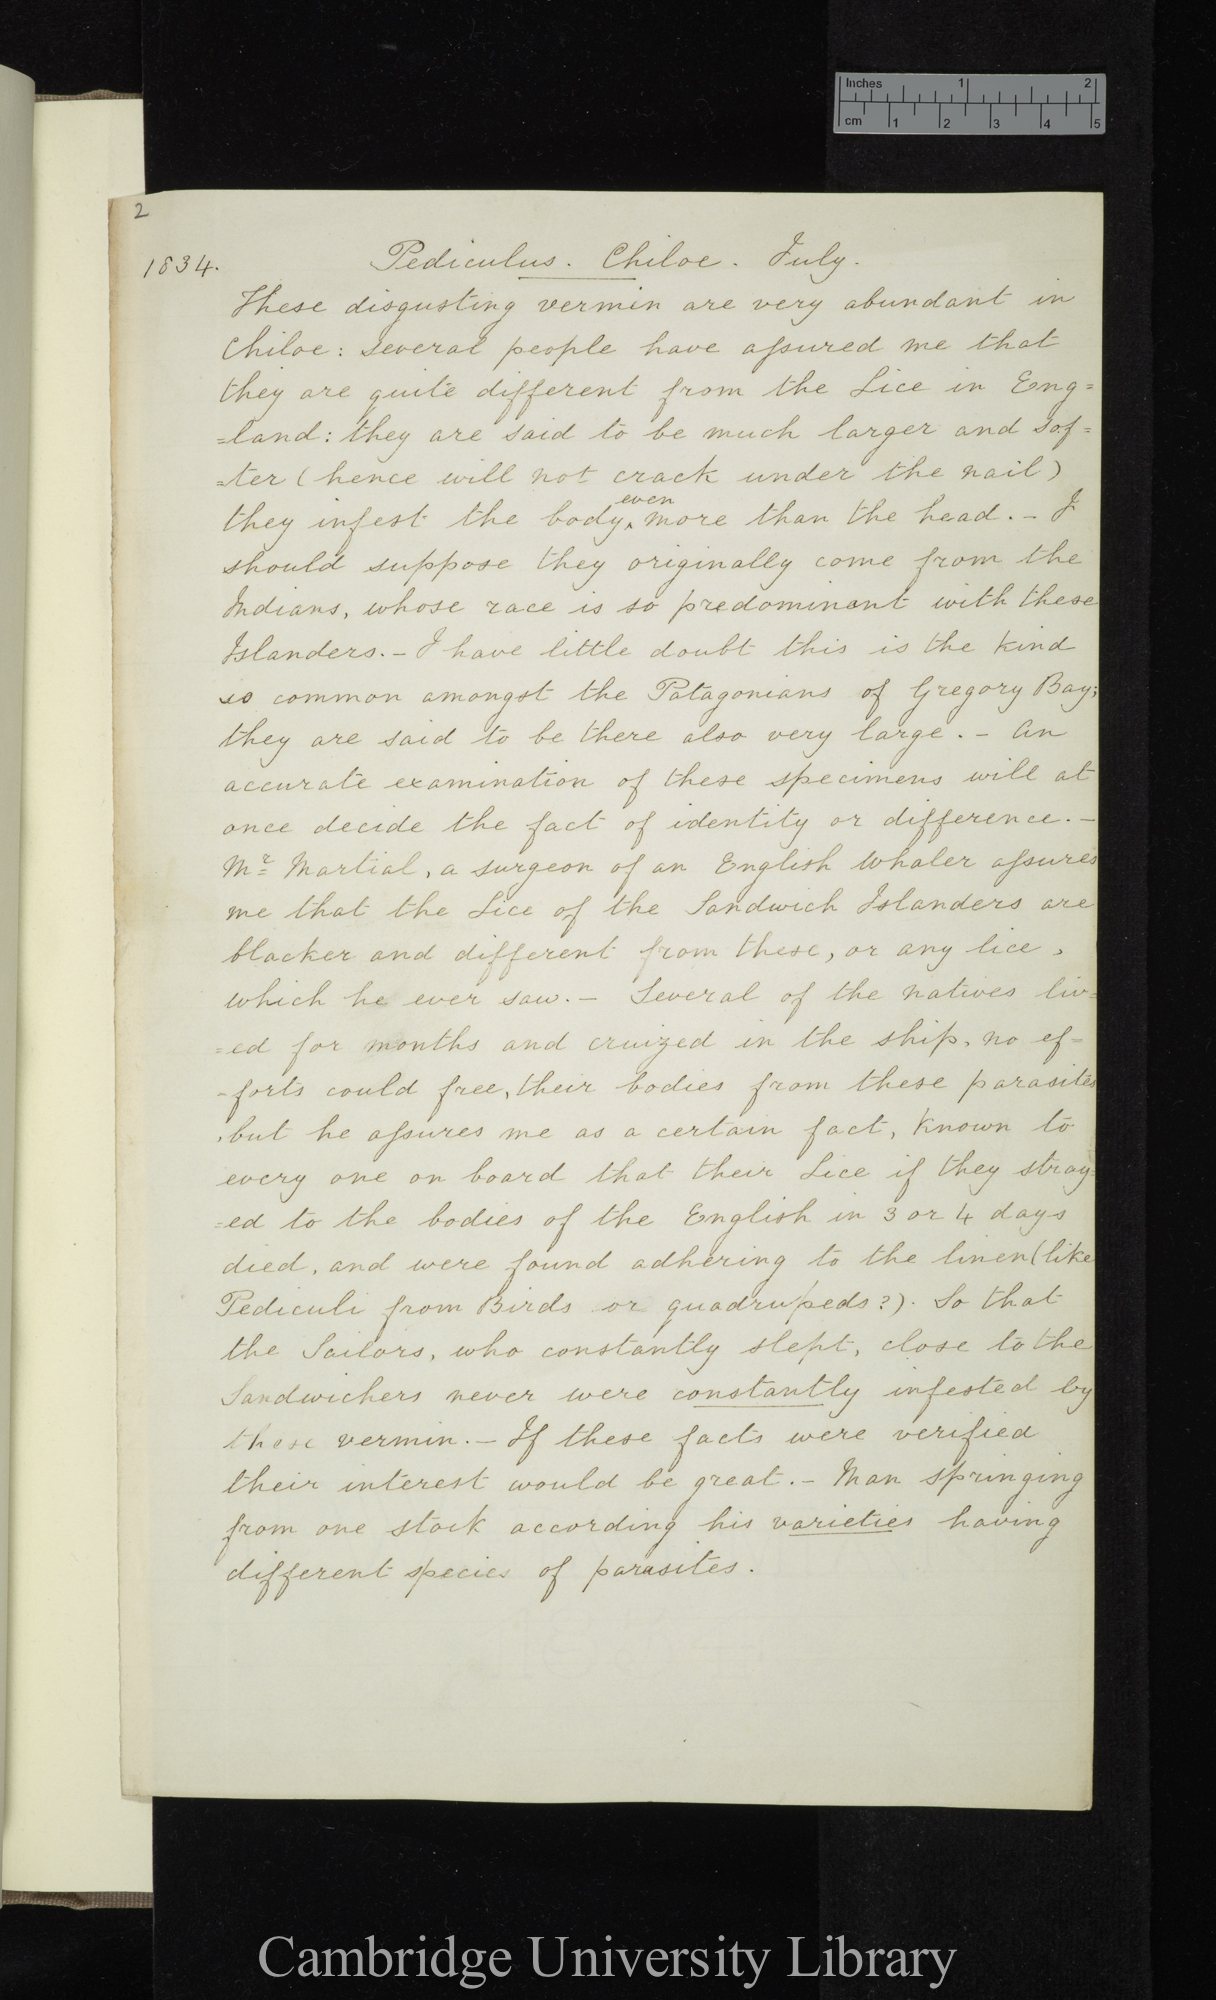 Inches 1 2
cm 1 2 3 4 5
2
1834. Pediculus. Chiloe. July.
These disgusting vermin are very abundant in
Chiloe: several people have aſsured me that
they are quite different from the Lice in Eng=
=land: they are said to be much larger and sof=
=ter (hence will not crack under the nail)
even
they infest the body ‸ more than the head. — I
should suppose they originally come from the
Indians, whose race is so predominant with these
Islanders. — I have little doubt this is the kind
so common amongst the Patagonians of Gregory Bay;
they are said to be there also very large. — An
accurate examination of these specimens will at
once decide the fact of identity or difference. —
Mr. Martial, a surgeon of an English Whaler aſsures
me that the Lice of the Sandwich Islanders are
blacker and different from these, or any lice,
which he ever saw. — Several of the natives liv=
=ed for months and cruized in the ship, no ef-
-forts could free, their bodies from these parasites
, but he aſsures me as a certain fact, known to
every one on board that their Lice if they stray-
=ed to the bodies of the English in 3 or 4 days
died, and were found adhering to the linen (like
Pediculi from Birds or quadrupeds?). So that
the Sailors, who constantly slept, close to the
Sandwichers never were constantly infested by
these vermin. — If these facts were verified
their interest would be great. — Man springing
from one stock according his varieties having
different species of parasites.
Cambridge University Library